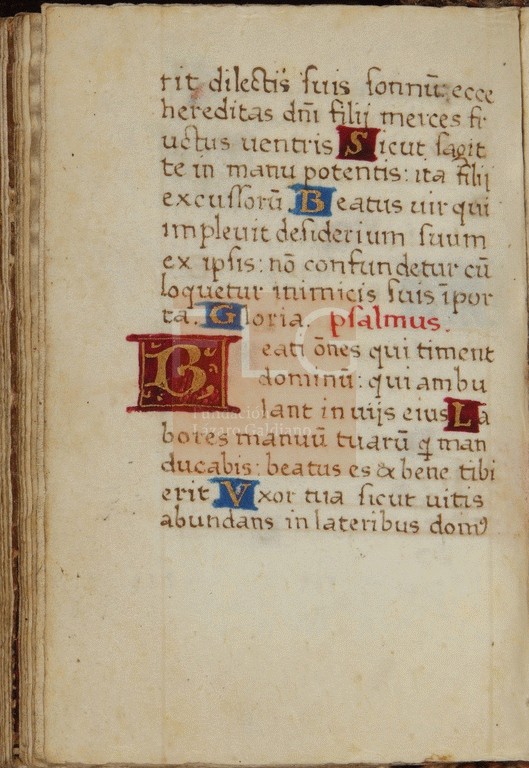 rit dilectis suis sonnū: ecce
hereditas dn̄i filij merces fr
uctus uentris Sicut sagit
te in manu potentis: ita filij
excussorū Beatus uir qui
impleuit desiderium suum
ex ipsis: nō confundetur cū
loquetur inimicis suis īpor
ta. Gloria. psalmus.
Beati ōnes qui timent
dominū: qui ambu
lant in uijs eius La
bores manuū tuarū q̄ man
ducabis: beatus es & bene tibi
erit Vxor tua sicut uitis
abundans in lateribus domꝰ
FLG
Fundación
Lázaro Galdiano